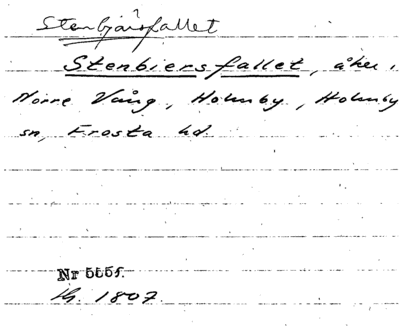 Stenbjärsfallet
Stenbiersfallet, åker i
Norre Vång, Holmby, Holmby
sn, Frosta hd.
Nr 555f.
1807.